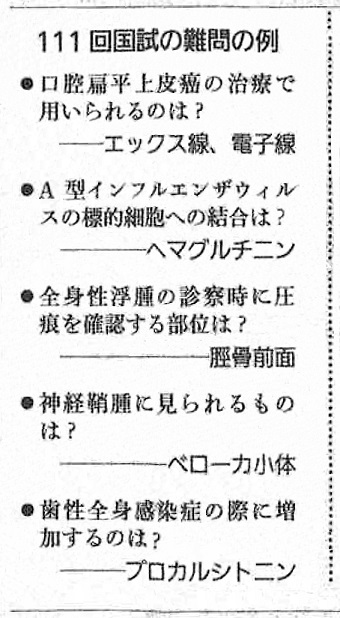 111回国試の難問の例
●口腔扁平上皮癌の治療で
用いられるのは？
――エックス線、電子線
●A型インフルエンザウィル
スの標的細胞への結合は？
――――ヘマグルチニン
●全身性浮腫の診察時に圧
痕を確認する部位は？
―――――――脛骨前面
●神経鞘腫に見られるもの
は？
―――――ベローカ小体
●歯性全身感染症の際に増
加するのは？
―――プロカルシトニン